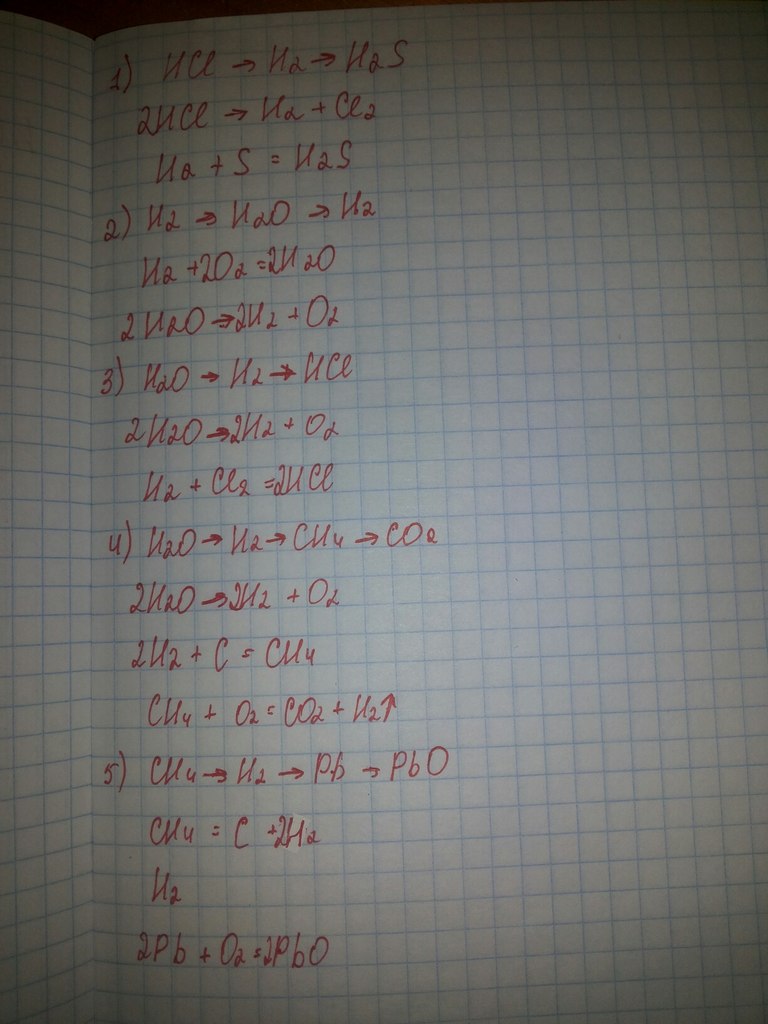 1) HCl → H2 → H2S
2HCl → H2 + Cl2
H2 + S = H2S
2) H2 → H2O → H2
H2 + 2O2 = 2H2O
2H2O → 2H2 + O2
3) H2O → H2 → HCl
2H2O → 2H2 + O2
H2 + Cl2 = 2HCl
4) H2O → H2 → CH4 → CO2
2H2O → 2H2 + O2
2H2 + C = CH4
CH4 + O2 = CO2 + H2↑
5) CH4 → H2 → Pb → PbO
CH4 = C + 2H2
H2
2Pb + O2 = 2PbO